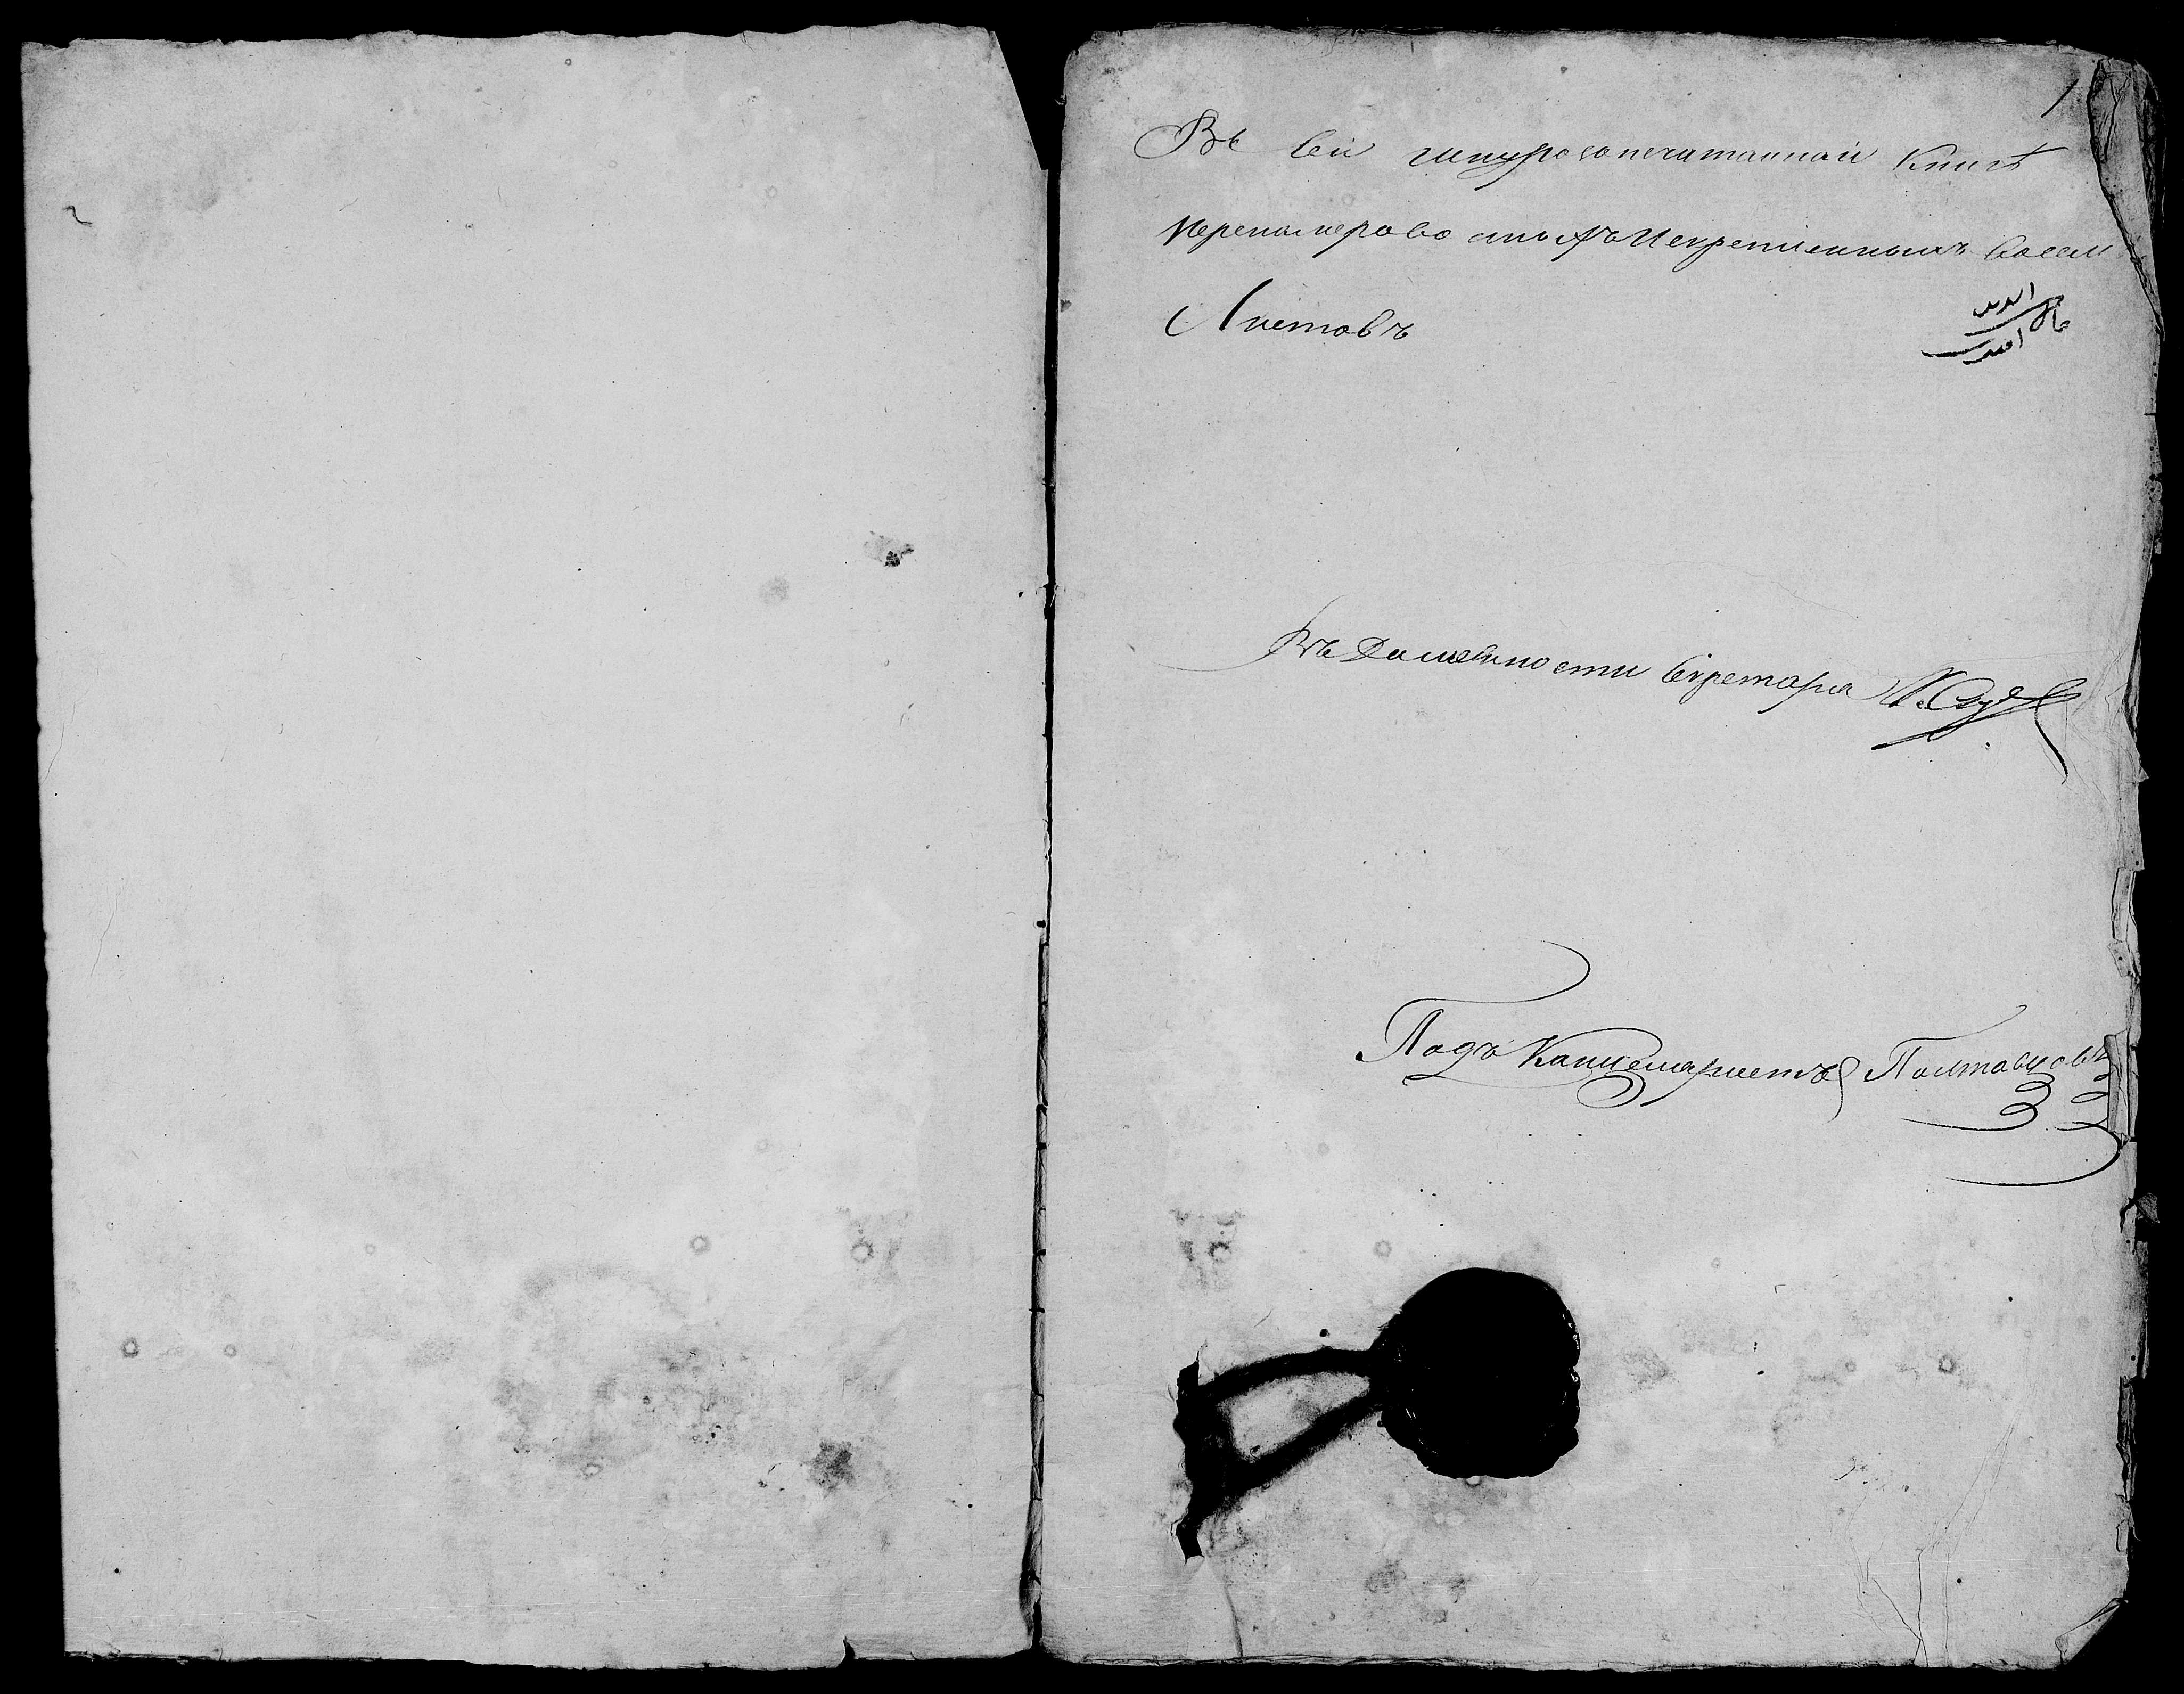 1
Въ сей шнуросапечатанной Книгѣ
Перенумерованыхъ И скрепленныхъ восем
Листовъ
Въ Должности Секретаря
Подъ Канцеляристъ Полтавцовъ